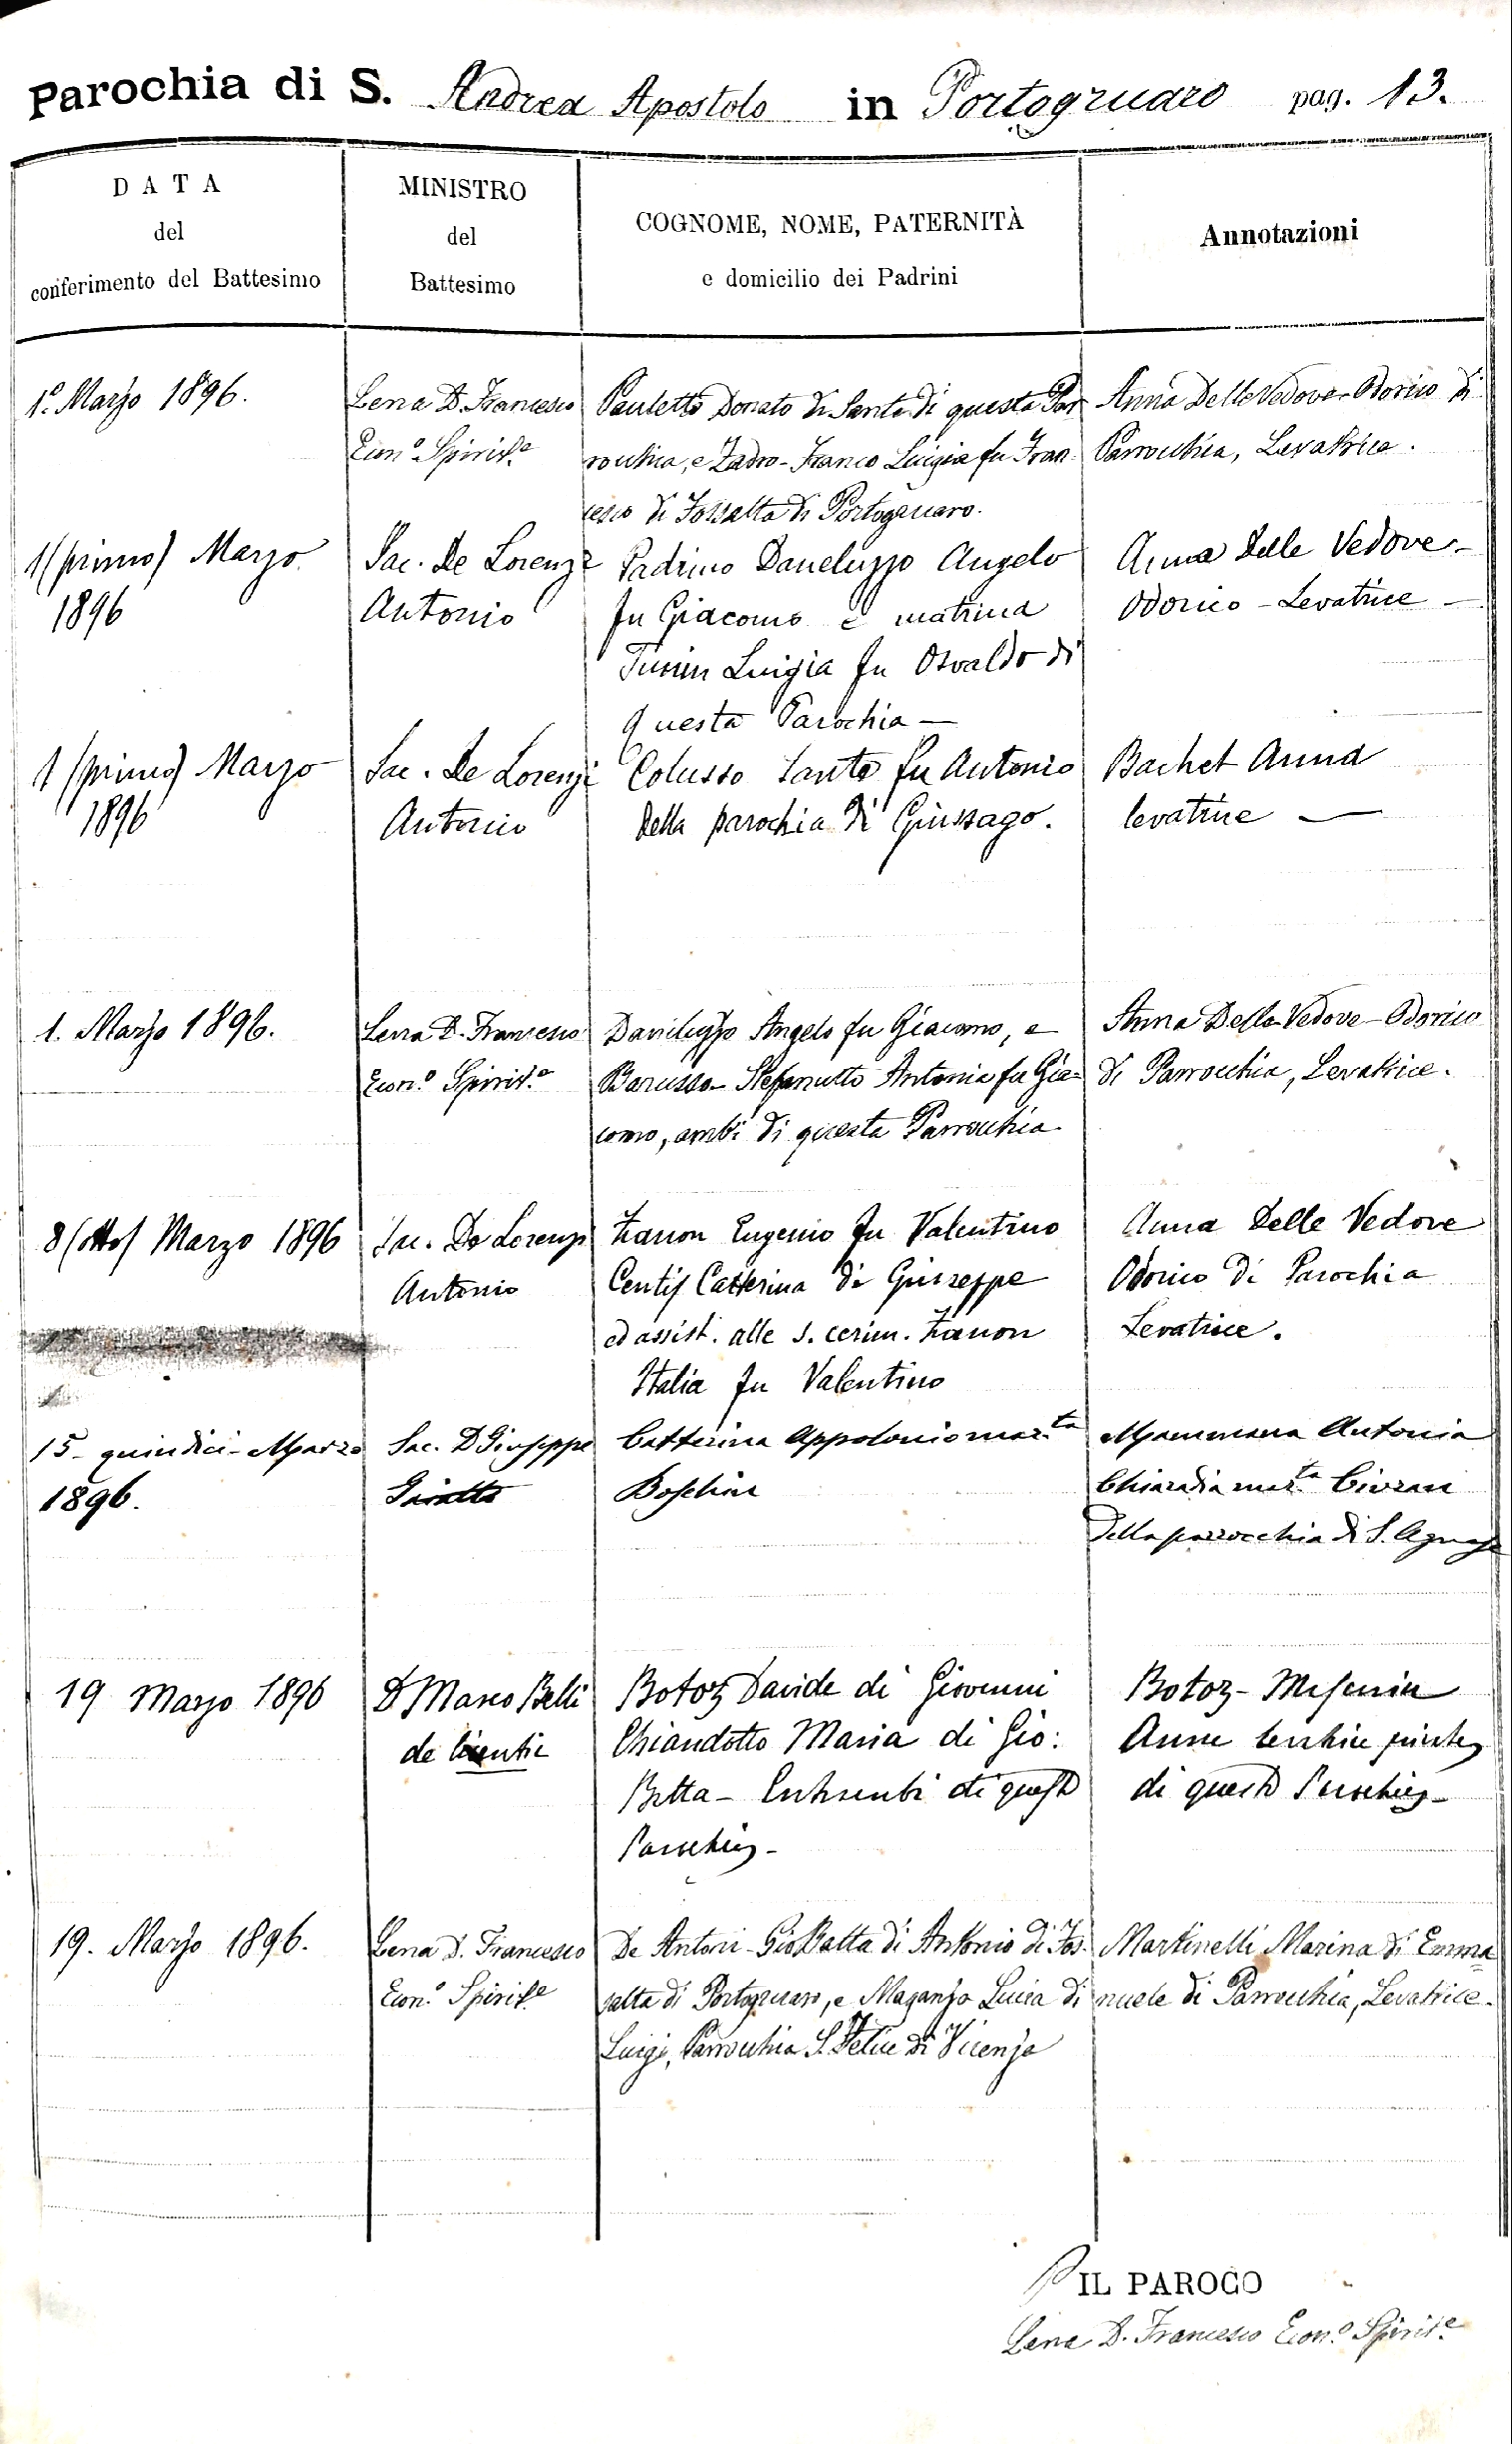 Parochia di S. Andrea Apostolo in Portogruaro pag. 13.
DATA
del
conferimento del Battesimo
MINISTRO
del
Battesimo
COGNOME, NOME, PATERNITÀ
e domicilio dei Padrini
Annotazioni
1.º Marzo 1896.
Lena D. Francesco
Econº Spiritᵉ
Pauletto Donato di Sante di questa Par
rocchia, e Zadro-Franco Luigia fu Fran
cesco di Fossalta di Portogruaro.
Anna Delle Vedove-Odorico di
Parrocchia, Levatrice.
1 (primo) Marzo
1896
Sac. De Lorenzi
Antonio
Padrino Daneluzzo Angelo
fu Giacomo e matrina
Luigia fu Osvaldo di
questa Parochia —
Anna Delle Vedove-
Odorico - Levatrice —
1 (primo) Marzo
1896
Sac. De Lorenzi
Antonio
Colusso Sante fu Antonio
della parochia di Giussago.
Bachet Anna
levatrice —
1. Marzo 1896.
Lena D. Francesco
Econ.º Spirit.ᵉ
Daniluzzo Angelo fu Giacomo, e
Barusso-Stefanutto Antonia fu Gia=
como, ambi di questa Parrocchia
Anna Delle Vedove-Odorico
di Parrocchia, Levatrice.
8 (otto) Marzo 1896
Sac. De Lorenzi
Antonio
Zanon Eugenio fu Valentino
Centis Catterina di Giuseppe
ed assist. alle s. cerim. Zanon
Italia fu Valentino
Anna Delle Vedove
Odorico di Parochia
Levatrice.
15 - quindici - Marzo
1896.
Sac. D Giuseppe
Catterina Appolonio mar.ta
Boschin
Mammana Antonia
Chiaradia mar.ta Civran
della parrocchia di S. Agnese
19 Marzo 1896
D Marco Belli
de licentia
Botoz Davide di Giovanni
Chiandotto Maria di Gio:
Btta - Entrambi di questa
Parochia -
Botoz-
Anna
di questa Parochia -
19. Marzo 1896.
Lena D. Francesco
Econ.º Spirit.ᵉ
De Antoni-GioBatta di Antonio di Fos-
salta di Portogruaro, e Maganzo Lucia di
Luigi, Parrocchia S. Felice di Vicenza
Martinelli Marina di Emma
nuele di Parrocchia, Levatrice.
P IL PAROCO
Lena D. Francesco Econ.º Spirit.ᵉ